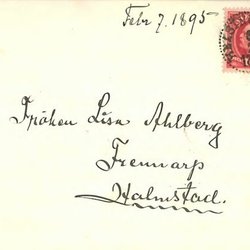 Febr 7. 1895
Fröken Lisa Ahlberg
Frennarp
Halmstad.